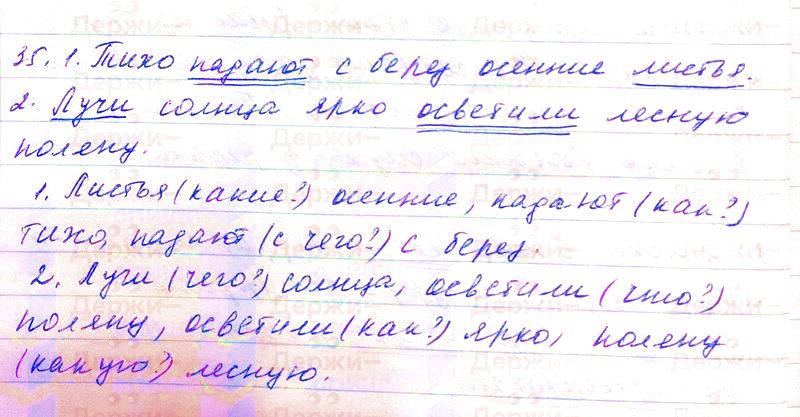 35. 1. Тихо падают с берез осенние листья.
2. Лучи солнца ярко осветили лесную
поляну.
1. Листья (какие?) осенние, падают (как?)
тихо, падают (с чего?) с берез.
2. Лучи (чего?) солнца, осветили (что?)
поляну, осветили (как?) ярко, поляну
(какую?) лесную.